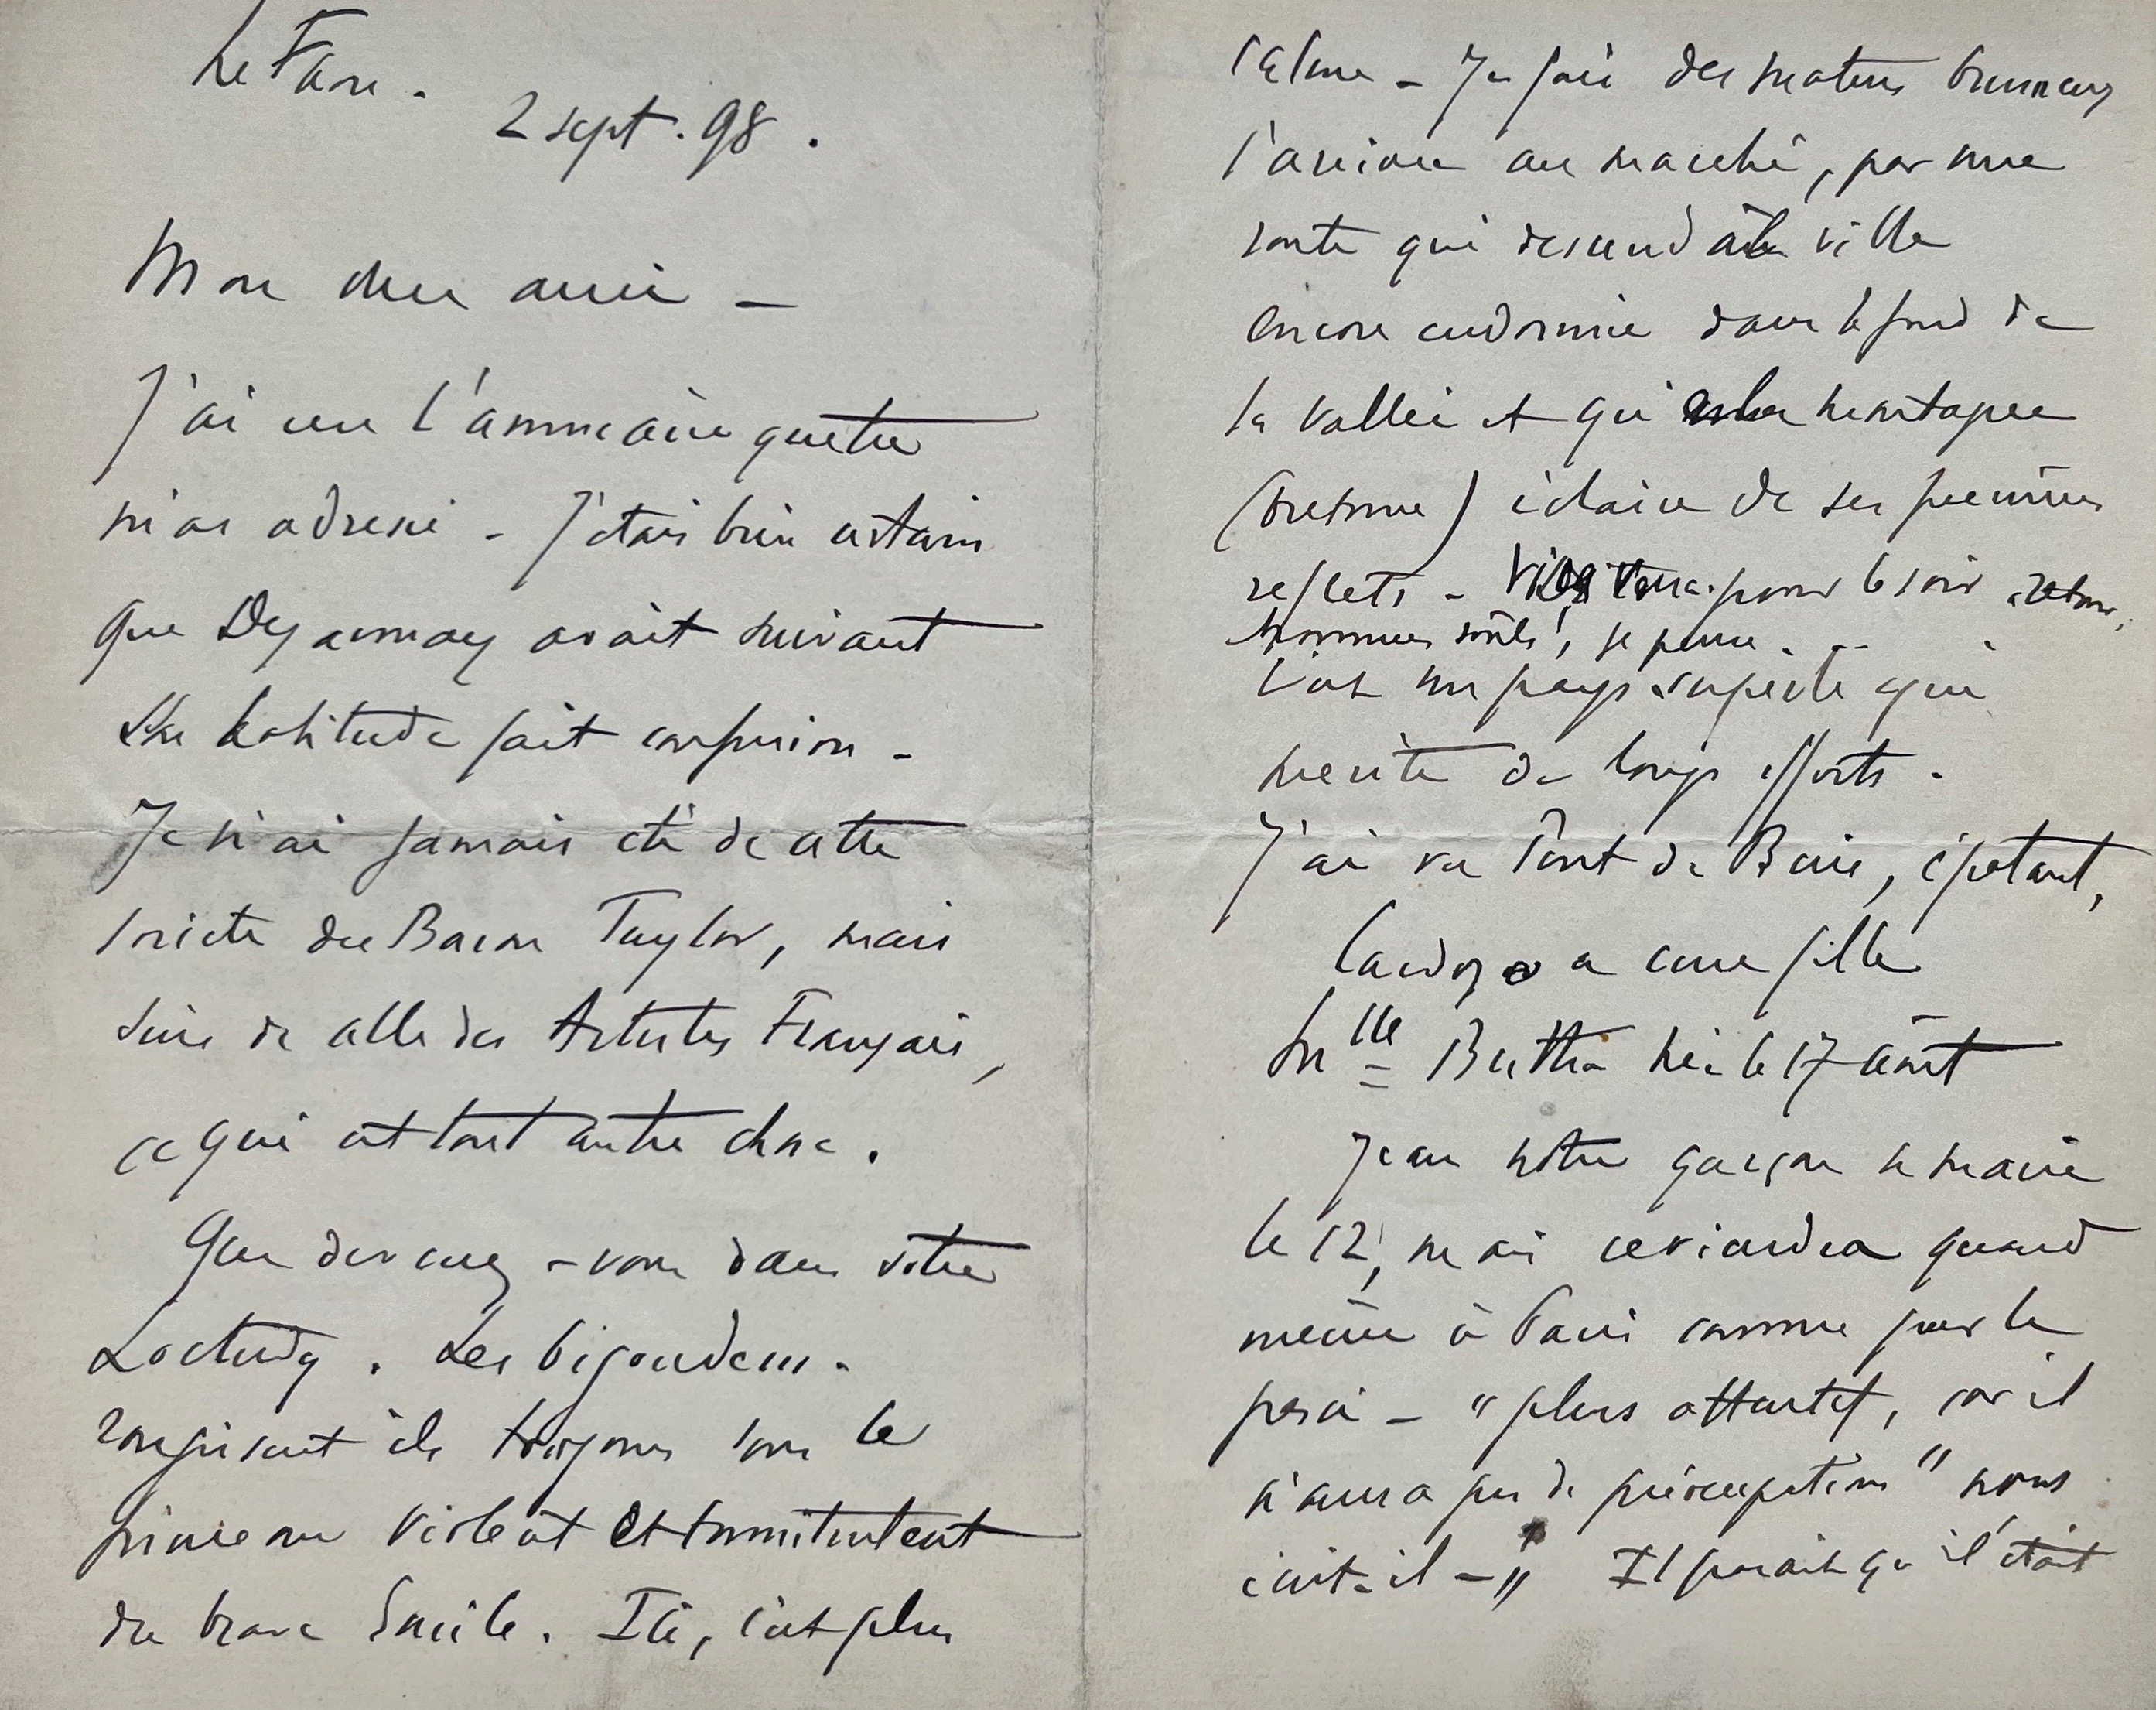 Le Faou.
2 sept. 98.
Mon cher ami —
J'ai vu l'annuaire que tu
m'as adressé - J'étais bien certain
que Deyarmay avait suivant
son habitude fait confusion -
Je n'ai jamais été de cette
société du Baron Taylor, mais
suis de celle des Artistes Français,
ce qui est tout autre chose.
Que devenez-vous dans votre
Loctudy. Les bigoudens.
rougissent ils toujours sous le
pinceau violent et tumitulent
du brave Emile. Ici, c'est plus
calme - Je fais des matins brumeux
l'arrivée au marché, par une
route qui descend à la ville
encore endormie dans le fond de
la vallée et qui montagne
(bretonne) éclaire de ses premiers
reflets - pour le soir retour,
hommes soûls!, je pense...
C'est un pays superbe qui
mérite de longs efforts.
J'ai vu Pont de Buis, épatant,
Cardoza a une fille
Mlle Berthe née le 17 août
Jean notre garçon se marie
le 12, mais reviendra quand
même à Paris comme par le
passé - "plus attentif, car il
n'aura plus de préoccupations" nous
écrit-il - " Il paraît qu'il était